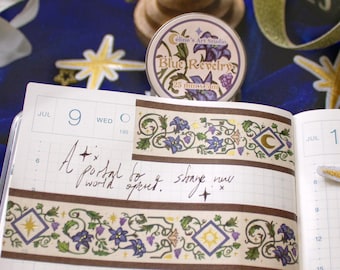 Art Studio
Blue Revelry
JUL 9 WED
JUL 1
A portal to a strange new
world opened.